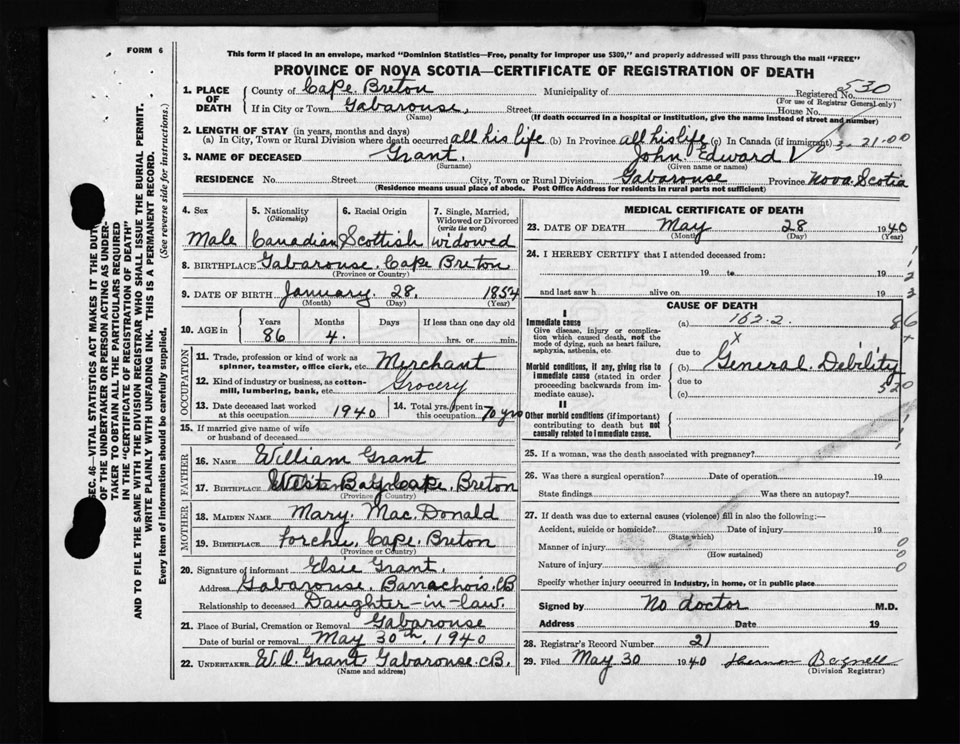 FORM 6
This form if placed in an envelope, marked "Dominion Statistics—Free, penalty for improper use $300," and properly addressed will pass through the mail "FREE"
PROVINCE OF NOVA SCOTIA—CERTIFICATE OF REGISTRATION OF DEATH
1. PLACE OF DEATH { County of Cape Breton Municipality of Registered No. 530
(For use of Registrar General only)
If in City or Town Gabarouse, Street House No.
(Name) (If death occurred in a hospital or institution, give the name instead of street and number)
2. LENGTH OF STAY (in years, months and days)
(a) In City, Town or Rural Division where death occurred all his life (b) In Province all his life (c) In Canada (if immigrant) 3-21-00
3. NAME OF DECEASED Grant, John Edward
(Surname) (Given name or names)
RESIDENCE No. Street City, Town or Rural Division Gabarouse Province Nova Scotia
(Residence means usual place of abode. Post Office Address for residents in rural parts not sufficient)
4. Sex 5. Nationality (Citizenship) 6. Racial Origin 7. Single, Married, Widowed or Divorced (write the word)
Male Canadian Scottish widowed
8. BIRTHPLACE Gabarouse. Cape Breton
(Province or Country)
9. DATE OF BIRTH January. 28. 1854
(Month) (Day) (Year)
10. AGE in Years Months Days If less than one day old
86 4. hrs. or min.
OCCUPATION
11. Trade, profession or kind of work as spinner, teamster, office clerk, etc. Merchant
12. Kind of industry or business, as cotton-mill, lumbering, bank, etc. Grocery
13. Date deceased last worked at this occupation 1940 14. Total yrs. spent in this occupation 70 yrs
15. If married give name of wife or husband of deceased
FATHER
16. NAME William Grant
17. BIRTHPLACE Cape Breton
(Province or Country)
MOTHER
18. MAIDEN NAME Mary. Mac. Donald
19. BIRTHPLACE Forchu, Cape. Breton
(Province or Country)
20. Signature of informant Elsie Grant.
Address Gabarouse Barrachois. CB
Relationship to deceased Daughter-in-law.
21. Place of Burial, Cremation or Removal Gabarouse
Date of burial or removal May 30th, 1940
22. UNDERTAKER W. A. Grant Gabarouse. CB.
(Name and address)
MEDICAL CERTIFICATE OF DEATH
23. DATE OF DEATH May 28 1940
(Month) (Day) (Year)
24. I HEREBY CERTIFY that I attended deceased from:
19 to 19
and last saw h alive on 19
CAUSE OF DEATH
I
Immediate cause (a) 162-2. 86
Give disease, injury or complication which caused death, not the mode of dying, such as heart failure, asphyxia, asthenia, etc.
due to
Morbid conditions, if any, giving rise to immediate cause (stated in order proceeding backwards from immediate cause).
(b) General. Debility
due to
(c) 520
II
Other morbid conditions (if important) contributing to death but not causally related to immediate cause.
25. If a woman, was the death associated with pregnancy?
26. Was there a surgical operation? Date of operation 19
State findings Was there an autopsy?
27. If death was due to external causes (violence) fill in also the following:—
Accident, suicide or homicide? Date of injury 19
(State which)
Manner of injury 0
(How sustained) 0
Nature of injury 0
Specify whether injury occurred in industry, in home, or in public place
Signed by No doctor M.D.
Address Date 19
28. Registrar's Record Number 21
29. Filed May 30 1940 Bagnell
(Division Registrar)
SEC. 46—VITAL STATISTICS ACT MAKES IT THE DUTY
OF THE UNDERTAKER OR PERSON ACTING AS UNDER-
TAKER TO OBTAIN ALL THE PARTICULARS REQUIRED
IN THE "CERTIFICATE OF REGISTRATION OF DEATH"
AND TO FILE THE SAME WITH THE DIVISION REGISTRAR WHO SHALL ISSUE THE BURIAL PERMIT.
WRITE PLAINLY WITH UNFADING INK. THIS IS A PERMANENT RECORD.
Every item of information should be carefully supplied. (See reverse side for instructions.)